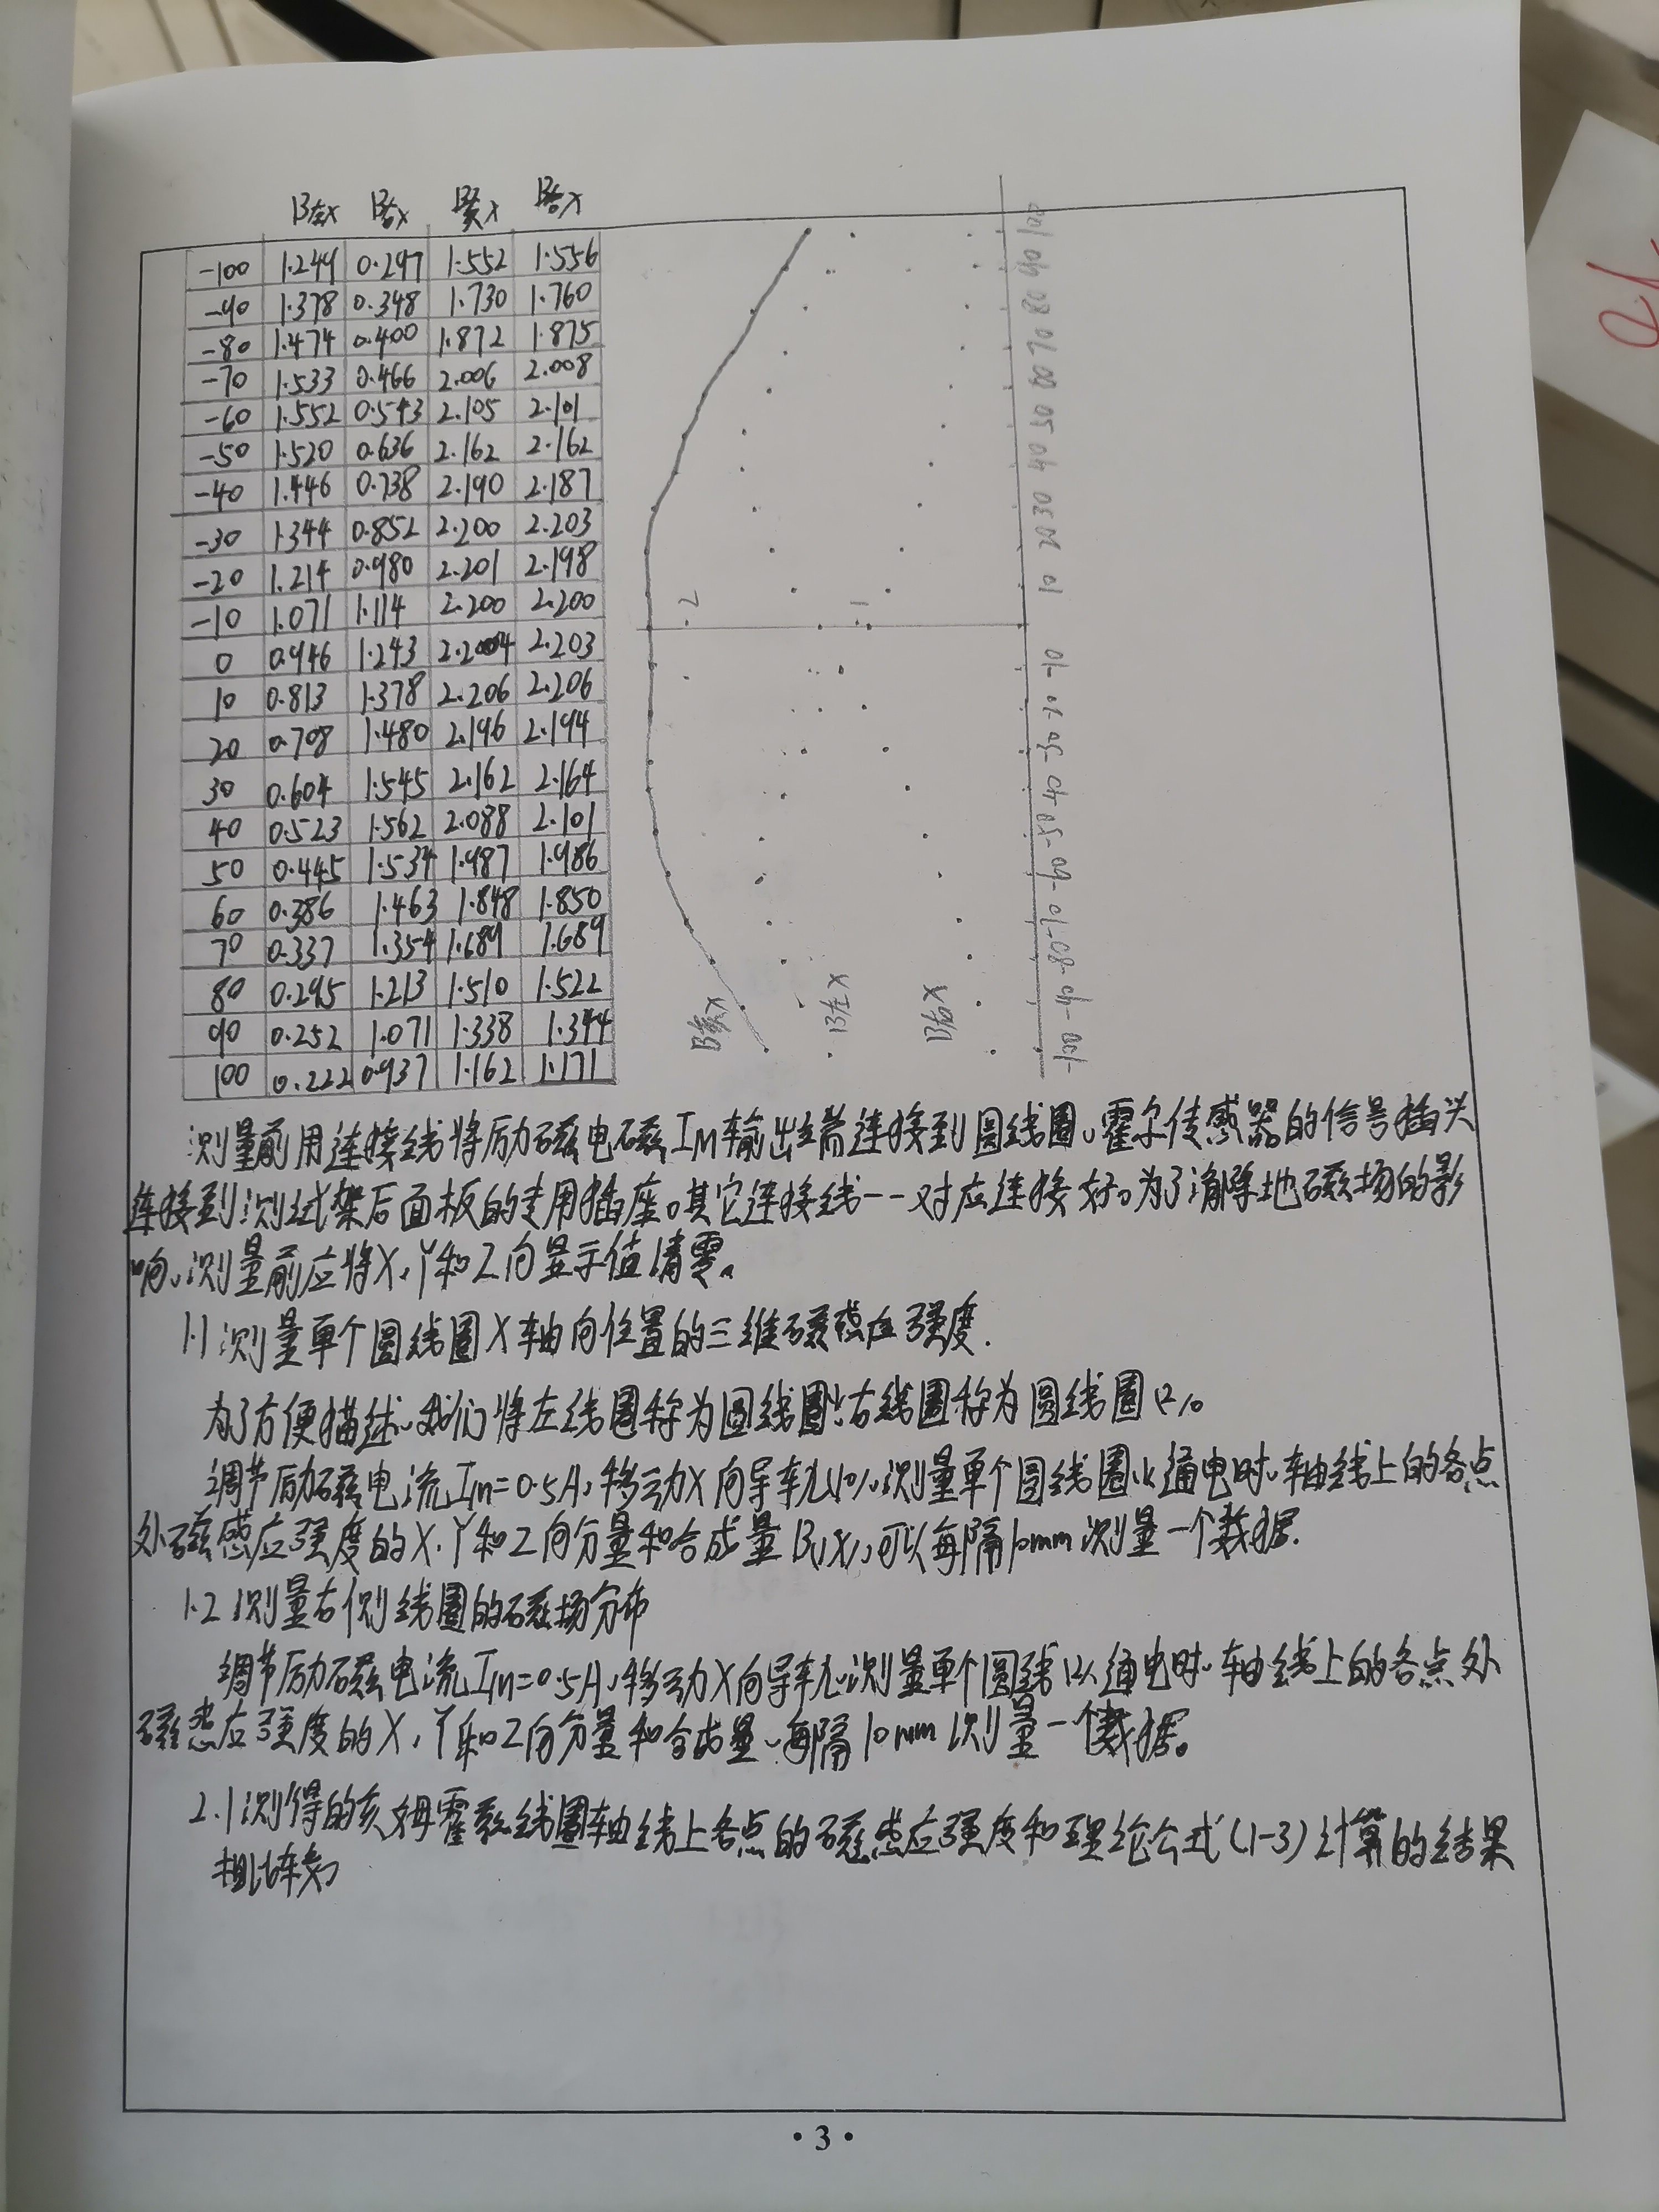 B左x B右x B亥x B合x
-100 1.249 0.297 1.552 1.556
-90 1.378 0.348 1.730 1.760
-80 1.474 0.400 1.872 1.875
-70 1.533 0.466 2.006 2.008
-60 1.552 0.543 2.105 2.101
-50 1.520 0.636 2.162 2.162
-40 1.446 0.738 2.190 2.187
-30 1.344 0.852 2.200 2.203
-20 1.214 0.980 2.201 2.198
-10 1.071 1.114 2.200 2.200
0 0.946 1.243 2.203
10 0.813 1.378 2.206 2.206
20 0.708 1.480 2.196 2.194
30 0.604 1.545 2.162 2.164
40 0.523 1.562 2.088 2.101
50 0.445 1.534 1.987 1.986
60 0.386 1.463 1.848 1.850
70 0.337 1.354 1.689 1.689
80 0.295 1.213 1.510 1.522
90 0.252 1.071 1.338 1.344
100 0.222 0.937 1.162 1.171
100 90 80 70 60 50 40 30 20 10
2 1
B亥x B左x B右x
测量前用连接线将励磁电磁IM输出端连接到圆线圈、霍尔传感器的信号插头
连接到测试架后面板的专用插座。其它连接线一一对应连接好。为了消除地磁场的影
响、测量前应将X、Y和Z向显示值清零。
1.1 测量单个圆线圈X轴向位置的三维磁感应强度.
为了方便描述、我们将左线圈称为圆线圈 右线圈称为圆线圈
调节励磁电流Im=0.5A,移动X向导轨 测量单个圆线圈 通电时、轴线上的各点
处磁感应强度的X、Y和Z向分量和合成量B(x),可以每隔10mm测量一个数据.
1.2 测量右侧线圈的磁场分布
调节励磁电流Im=0.5A,移动X向导轨、测量单个圆线 通电时、轴线上的各点处
磁感应强度的X、Y和Z向分量和合成量、每隔10mm测量一个数据。
2.1 测得的亥姆霍兹线圈轴线上各点的磁感应强度和理论公式(1-3)计算的结果
相比较
·3·